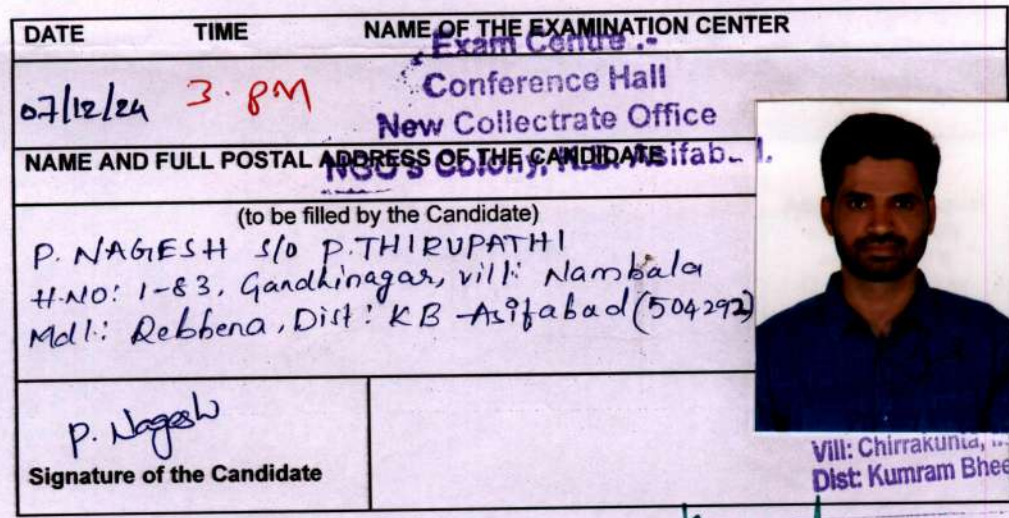 DATE TIME NAME OF THE EXAMINATION CENTER
Exam Centre :-
Conference Hall
07/12/24 3. PM
New Collectrate Office
NAME AND FULL POSTAL ADDRESS OF THE CANDIDATE
NGO's Colony, Asifab
(to be filled by the Candidate)
P. NAGESH S/O P. THIRUPATHI
H.NO: 1-83, Gandhinagar, vill: Nambala
Mdl: Rebbena, Dist: KB Asifabad (504292)
P. Nagesh
Signature of the Candidate
Vill: Chirrakunta,
Dist: Kumram Bhee